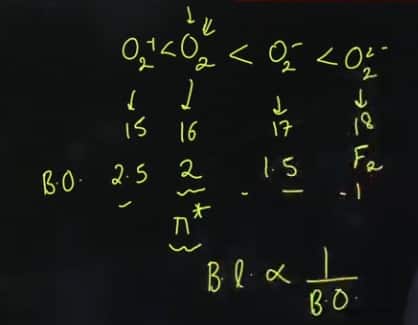 O₂⁺ < O₂ < O₂⁻ < O₂²⁻
15 16 17 18
B.O. 2.5 2 1.5 F₂
1
π*
B.l. ∝ 1/B.O.